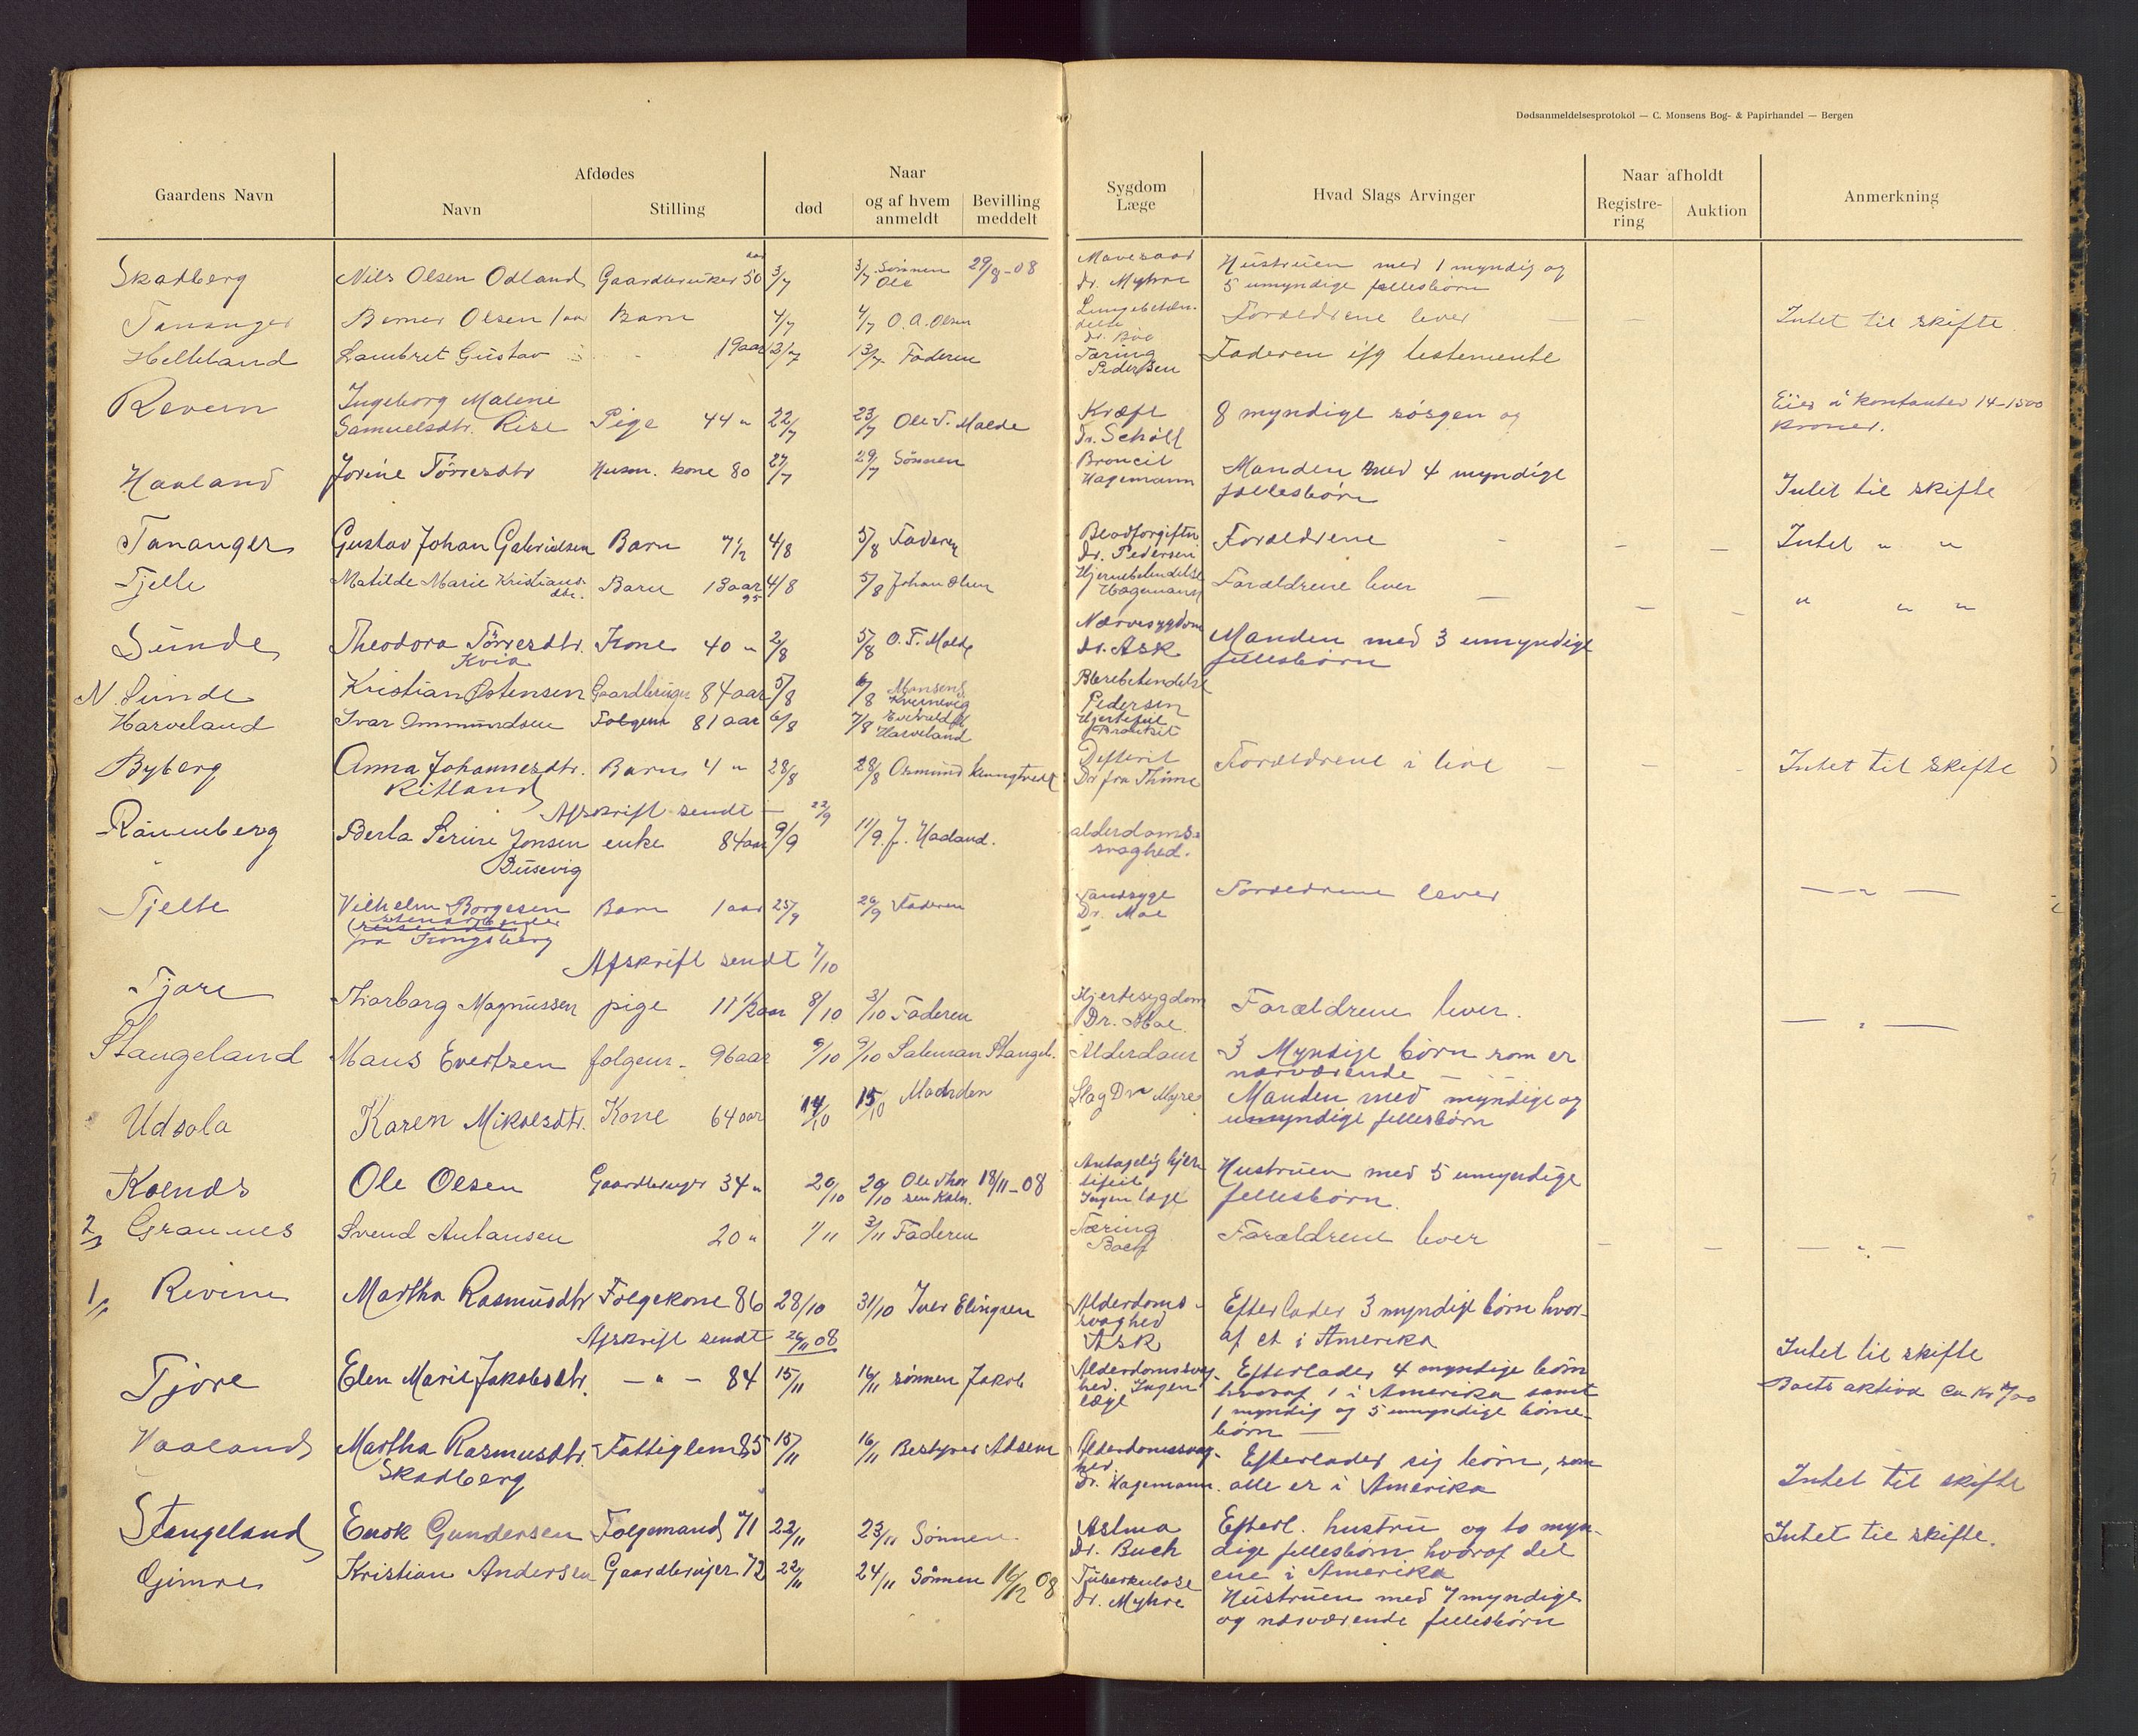 Dødsanmeldelsesprotokol — C. Monsens Bog- & Papirhandel — Bergen
Gaardens Navn
Afdødes
Navn
Stilling
Naar
død
og af hvem anmeldt
Bevilling meddelt
Sygdom Læge
Hvad Slags Arvinger
Naar afholdt
Registre-ring
Auktion
Anmerkning
Skadberg Nils Olsen Odland Gaardbruker 50 aar 3/7 3/7 Sönnen Ole 29/8-08 Mavesaar Dr. Myhre Hustruen med 1 myndig og
5 umyndige fellesbörn
Tananger Berner Olsen 1 aar Barn 4/7 4/7 O. A. Olsen Lungebeten-delse Dr. Boe Foreldrene lever — — Intet til skifte
Helleland Lambret Gustav 19 aar 13/7 Faderen Tæring Pedersen Faderen ifg testemente
Revem Ingeborg Malene
Samuelsdtr. Rise Pige 44 " 22/7 23/7 Ole T. Malde Kræft Dr. Schöll 8 myndige sösgen og Eier i kontanter 14-1500
kroner.
Haaland Jorine Törresdtr Husm. kone 80 27/7 29/7 Sönnen Broncit Hagemann Manden med 4 myndige
fellesbörn Intet til skifte
Tananger Gustav Johan Gabrielsen Barn 7 1/2 4/8 5/8 Faderen Blodforgiftn Dr. Pedersen Foreldrene - - - Intet " "
Tjelle Matilde Marie Kristians-dtr. Barn 13 aar 4/8 5/8 Johan Olsen Hjernebetendelse Hagemann Forældrene lever — — - " " "
Sunde Theodora Törresdtr. Kvia Kone 40 " 2/8 5/8 O. T. Malde Nervesygdom Dr. Ask Manden med 3 umyndige
fellesbörn
N. Sunde Kristian Östensen Gaardbruger 84 aar 5/8 6/8 Monsen Kvernevig Blærebetendelse Pedersen
Harveland Ivar Ommundsen Folgem 81 aar 6/8 7/8 Harveland Hjertefeil
Byberg Anna Johannesdtr. Ritland Barn 4 " 28/8 28/8 Osmund Defterit Dr fra Thime Foreldrene i live — — Intet til skifte
Afskrift sendt — 22/9
Raunberg Berta Serine Jonsen Busevig enke 84 aar 9/9 11/9. J. Haaland. alderdoms-svaghed.
Tjelle Vilhelm Borgesen
fra Kongsberg Barn 1 aar 25/9 26/9 Faderen Tandsyge Dr. Moe Foreldrene lever — " —
Afskrift sendt 7/10
Tjore Thorborg Magnussen pige 11 1/2 aar 8/10 3/10 Faderen Hjertesygdom Dr. Moe. Forældrene lever. — " —
Stangeland Maus Evertsen folgem - 96 aar 9/10 9/10 Stangel. Alderdom 3 Myndige börn som er
nærværende —
Udsola Karen Mikalsdtr. Kone 64 aar 14/10 15/10 Manden Slag Dr Myre Manden med myndige og
umyndige fellesbörn
Kolnes Ole Olsen Gaardbruger 34 " 20/10 20/10 Ole Thor sen Koln. 18/11-08 Antagelig hjer-tefeil Ingen læge Hustruen med 5 umyndige
fellesbörn.
2/3 Grannes Svend Antansen 20 " 1/11 3/11 Faderen Tæring Forældrene lever — — — " —
1/11 Revem Martha Rasmusdtr Folgekone 86 28/10 31/10 Iver Elingsen Alderdoms-svaghed Ask Efterlader 3 myndige börn hvor-
af et i Amerika
Afskrift sendt 26/11 08
Tjore Elen Marie Jakobsdtr. — " — 84 15/11 16/11 sönnen Jakob Alderdomssvag-hed. Ingen læge Efterlader 4 myndige börn
hvoraf 1 i Amerika samt
1 myndig og 5 umyndige börne-
börn — Intet til skifte
Boets aktiva ca Kr 700
Haaland Martha Rasmusdtr. Skadberg Fattiglem 85 15/11 16/11 Bestyrer Adsem Alderdomssvag-hed. Dr. Hagemann. Efterlader sig börn, som
alle er i Amerika Intet til skifte
Stangeland Enok Gundersen Folgemand 71 22/11 23/11 Sönnen Astma Dr. Buch Efterl. hustru og to myn-
dige fellesbörn hvoraf det
ene i Amerika Intet til skifte.
Gimre Kristian Andersen Gaardbruger 72 22/11 24/11 Sönnen 16/12 08 Tuberkulose Dr. Myhre Hustruen med 7 myndige
og nærværende fellesbörn